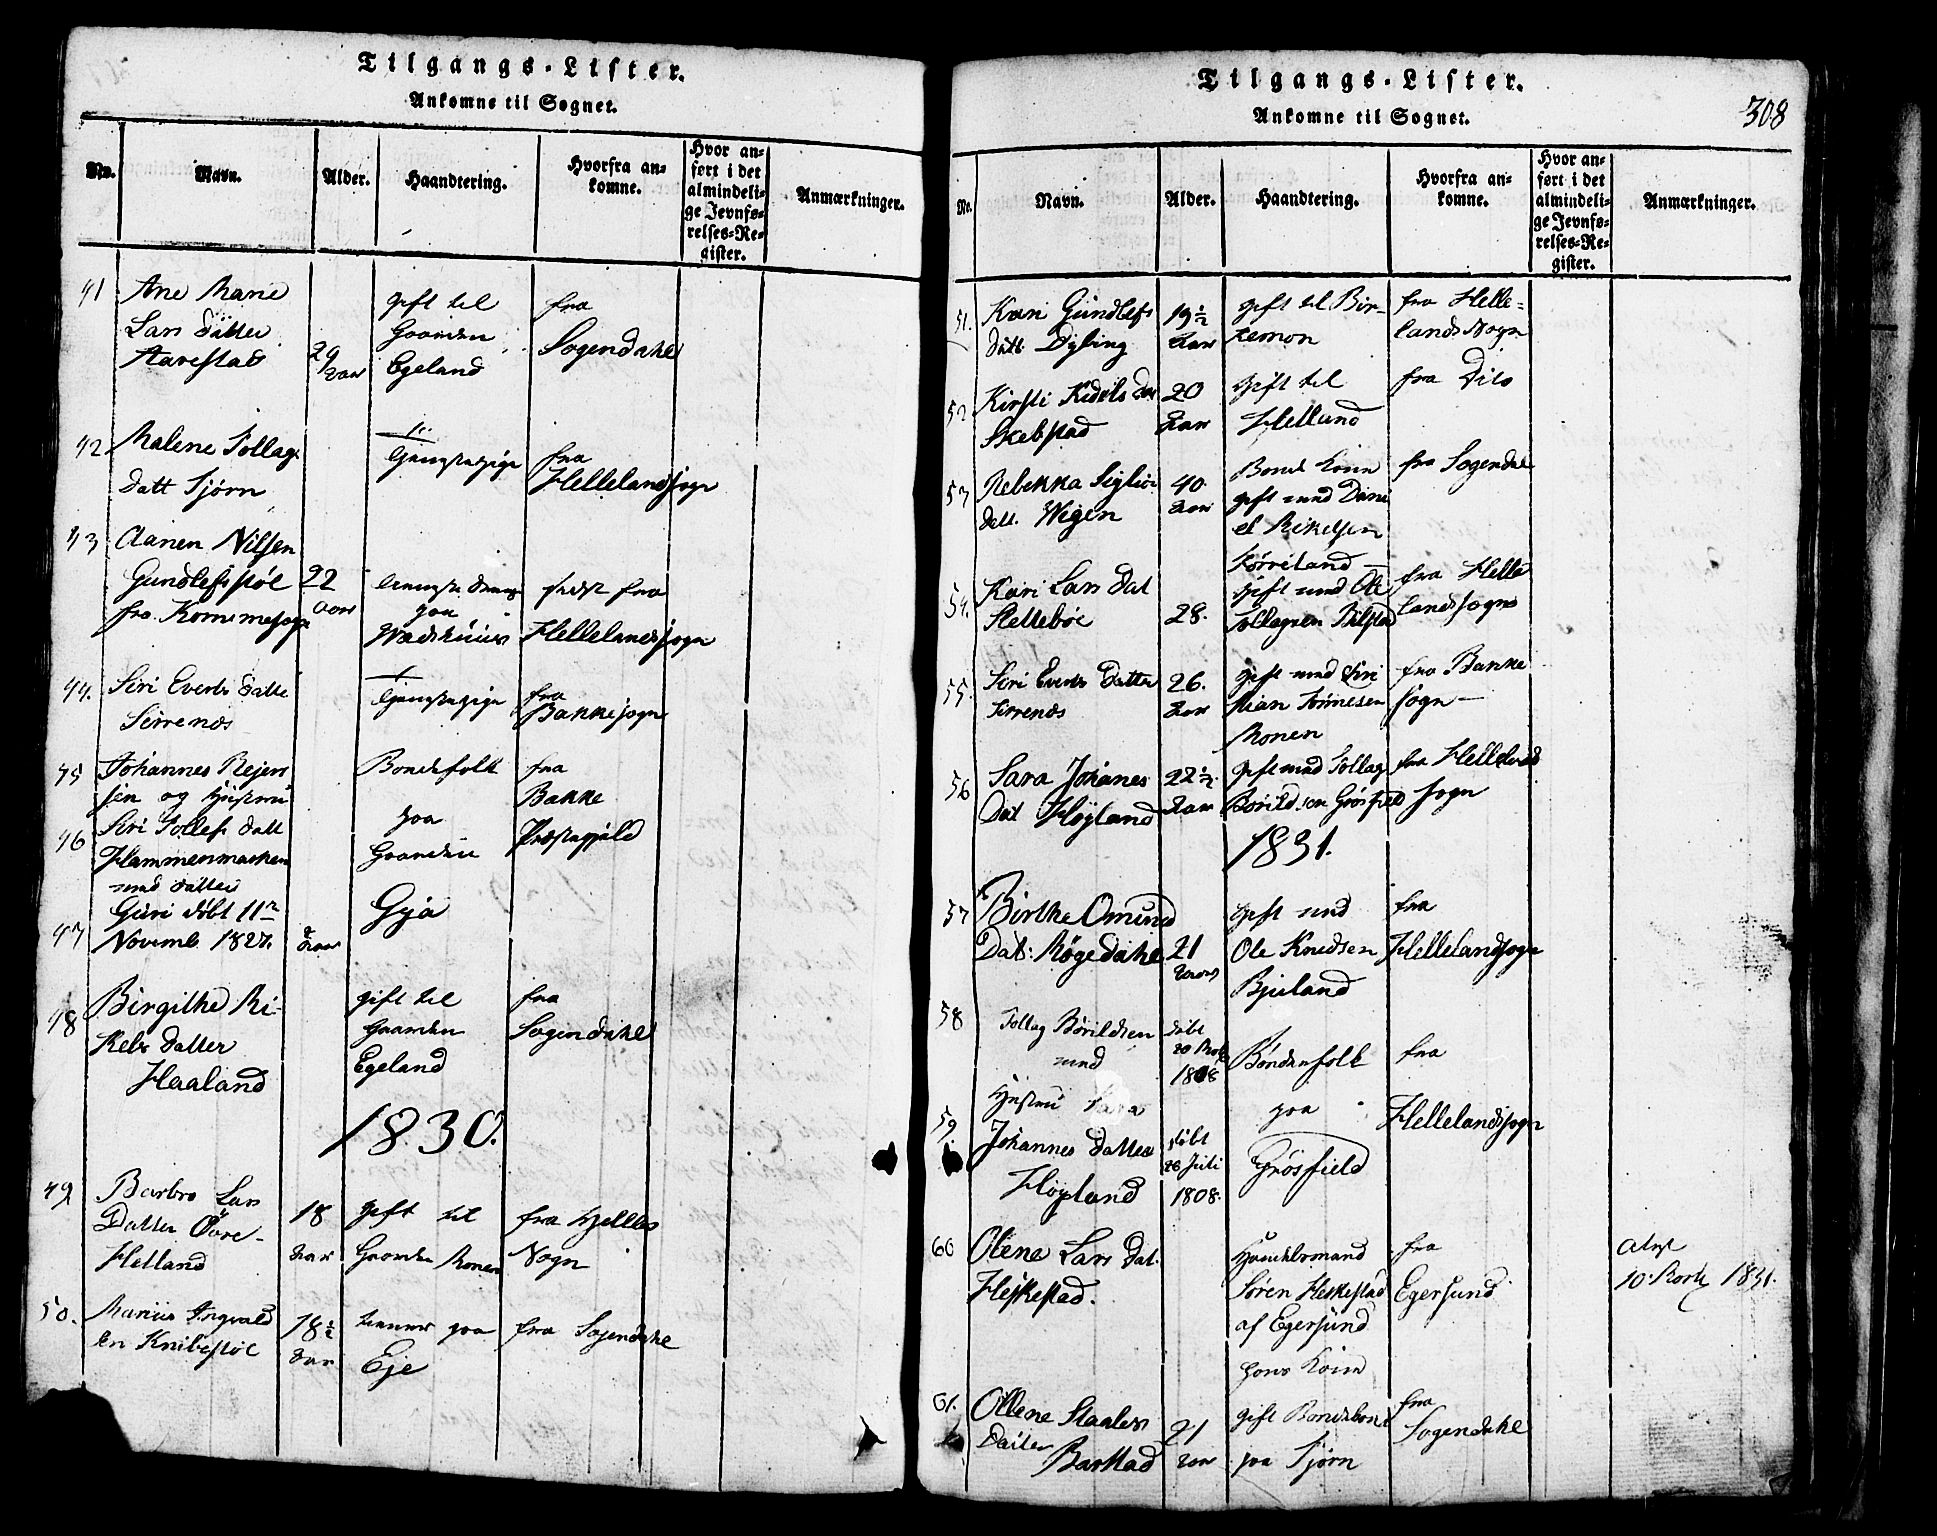 Tilgangs-Lister.
Ankomne til Sognet.
No.
Navn.
Alder.
Haandtering.
Hvorfra an-
komne.
Hvor an-
ført i det
almindeli-
ge Jevnfø-
relses-Re-
gister.
Anmærkninger.
41 Ane Marie
Lars Datter
Aarestad
29 Aar
gift til
Gaarden
Egeland
fra
Sogendahl
42 Malene Tollags
Datt Tjørn
Tjenestepige
fra
Hellelandsogn
43 Aanen Nilsen
Gundlefsstøl
22 aar
paa
fra
Hellelandsogn
44. Siri Everts Datte
Sirenæs
Tjenestepige
fra
Bakkesogn
45 Johannes Rejers
sen og Hustrue
46 Siri Tollefs Datt
med datter
47 Guri døbt 11te
Novemb. 1827.
2 Aar
Bondefolk
paa
Gaarden
Gya
fra
Bakke
Præstegjæld
48 Birgithe Mi-
kels Datter
Haaland
gift til
Gaarden
Egeland
fra
Sogendahl
1830.
49 Barbro Lars
Datter Øvre-
Helland
18 Aar
gift til
Gaarden Monen
fra Helle
Sogn
50. Marius Ingvald
sen Knibestøl
18½ Aar
paa
Eje
fra Sogendahl
Tilgangs-Lister.
Ankomne til Sognet.
308
No.
Navn.
Alder.
Haandtering.
Hvorfra an-
komne.
Hvor an-
ført i det
almindeli-
ge Jevnfø-
relses-Re-
gister.
Anmærkninger.
51. Kari Gundlefs
Datt. Dyling
19½ Aar
gift til Bir-
kemon
fra Helle-
lands Sogn
52. Kirsti Kidels Dat
Skebstad
20 Aar
gift til
Helland
fra Dito
53 Rebekka Siglivs
Datt. Wegen
40 Aar
Bonde Kone
gift med Dani
el Mikelsen
Tørreland
fra Sogendal
54. Kari Lars Dat
Slettebøe
28.
gift med Ole
Tollagsen Bilstad
fra Helle
landssogn
55. Siri Everts Datter
Sirenæs
26. Aar
gift med Siri
Monen
fra Bakke
sogn
56 Sara Johanes
Dat Høyland
22½ Aar
gift med Tollag
Børildsen Grøsfield
fra Helleland
sogn
1831.
57 Birthe Omund
Dat: Møgedahl
21 Aar
gift med
Ole Knudsen
Bjuland
fra
Hellelandsogn
58 Tollag Børildsen
med
døbt
20 Marts
1808
Bøndenfolk
fra
59. Hustru Sara
Johannes Datter
Høyland
døbt
28 Juli
1808.
paa
Grøsfield
Hellelandsogn
60 Olene Lars Dat.
Heskestad.
Handelsmand
Søren Heskestad
af Egersund
hans Kone
fra
Egersund
10. Marts 1831.
61. Ollene Staales
Datter
Barstad
21 Aar
gift
paa Tjørn
fra
Sogendahl